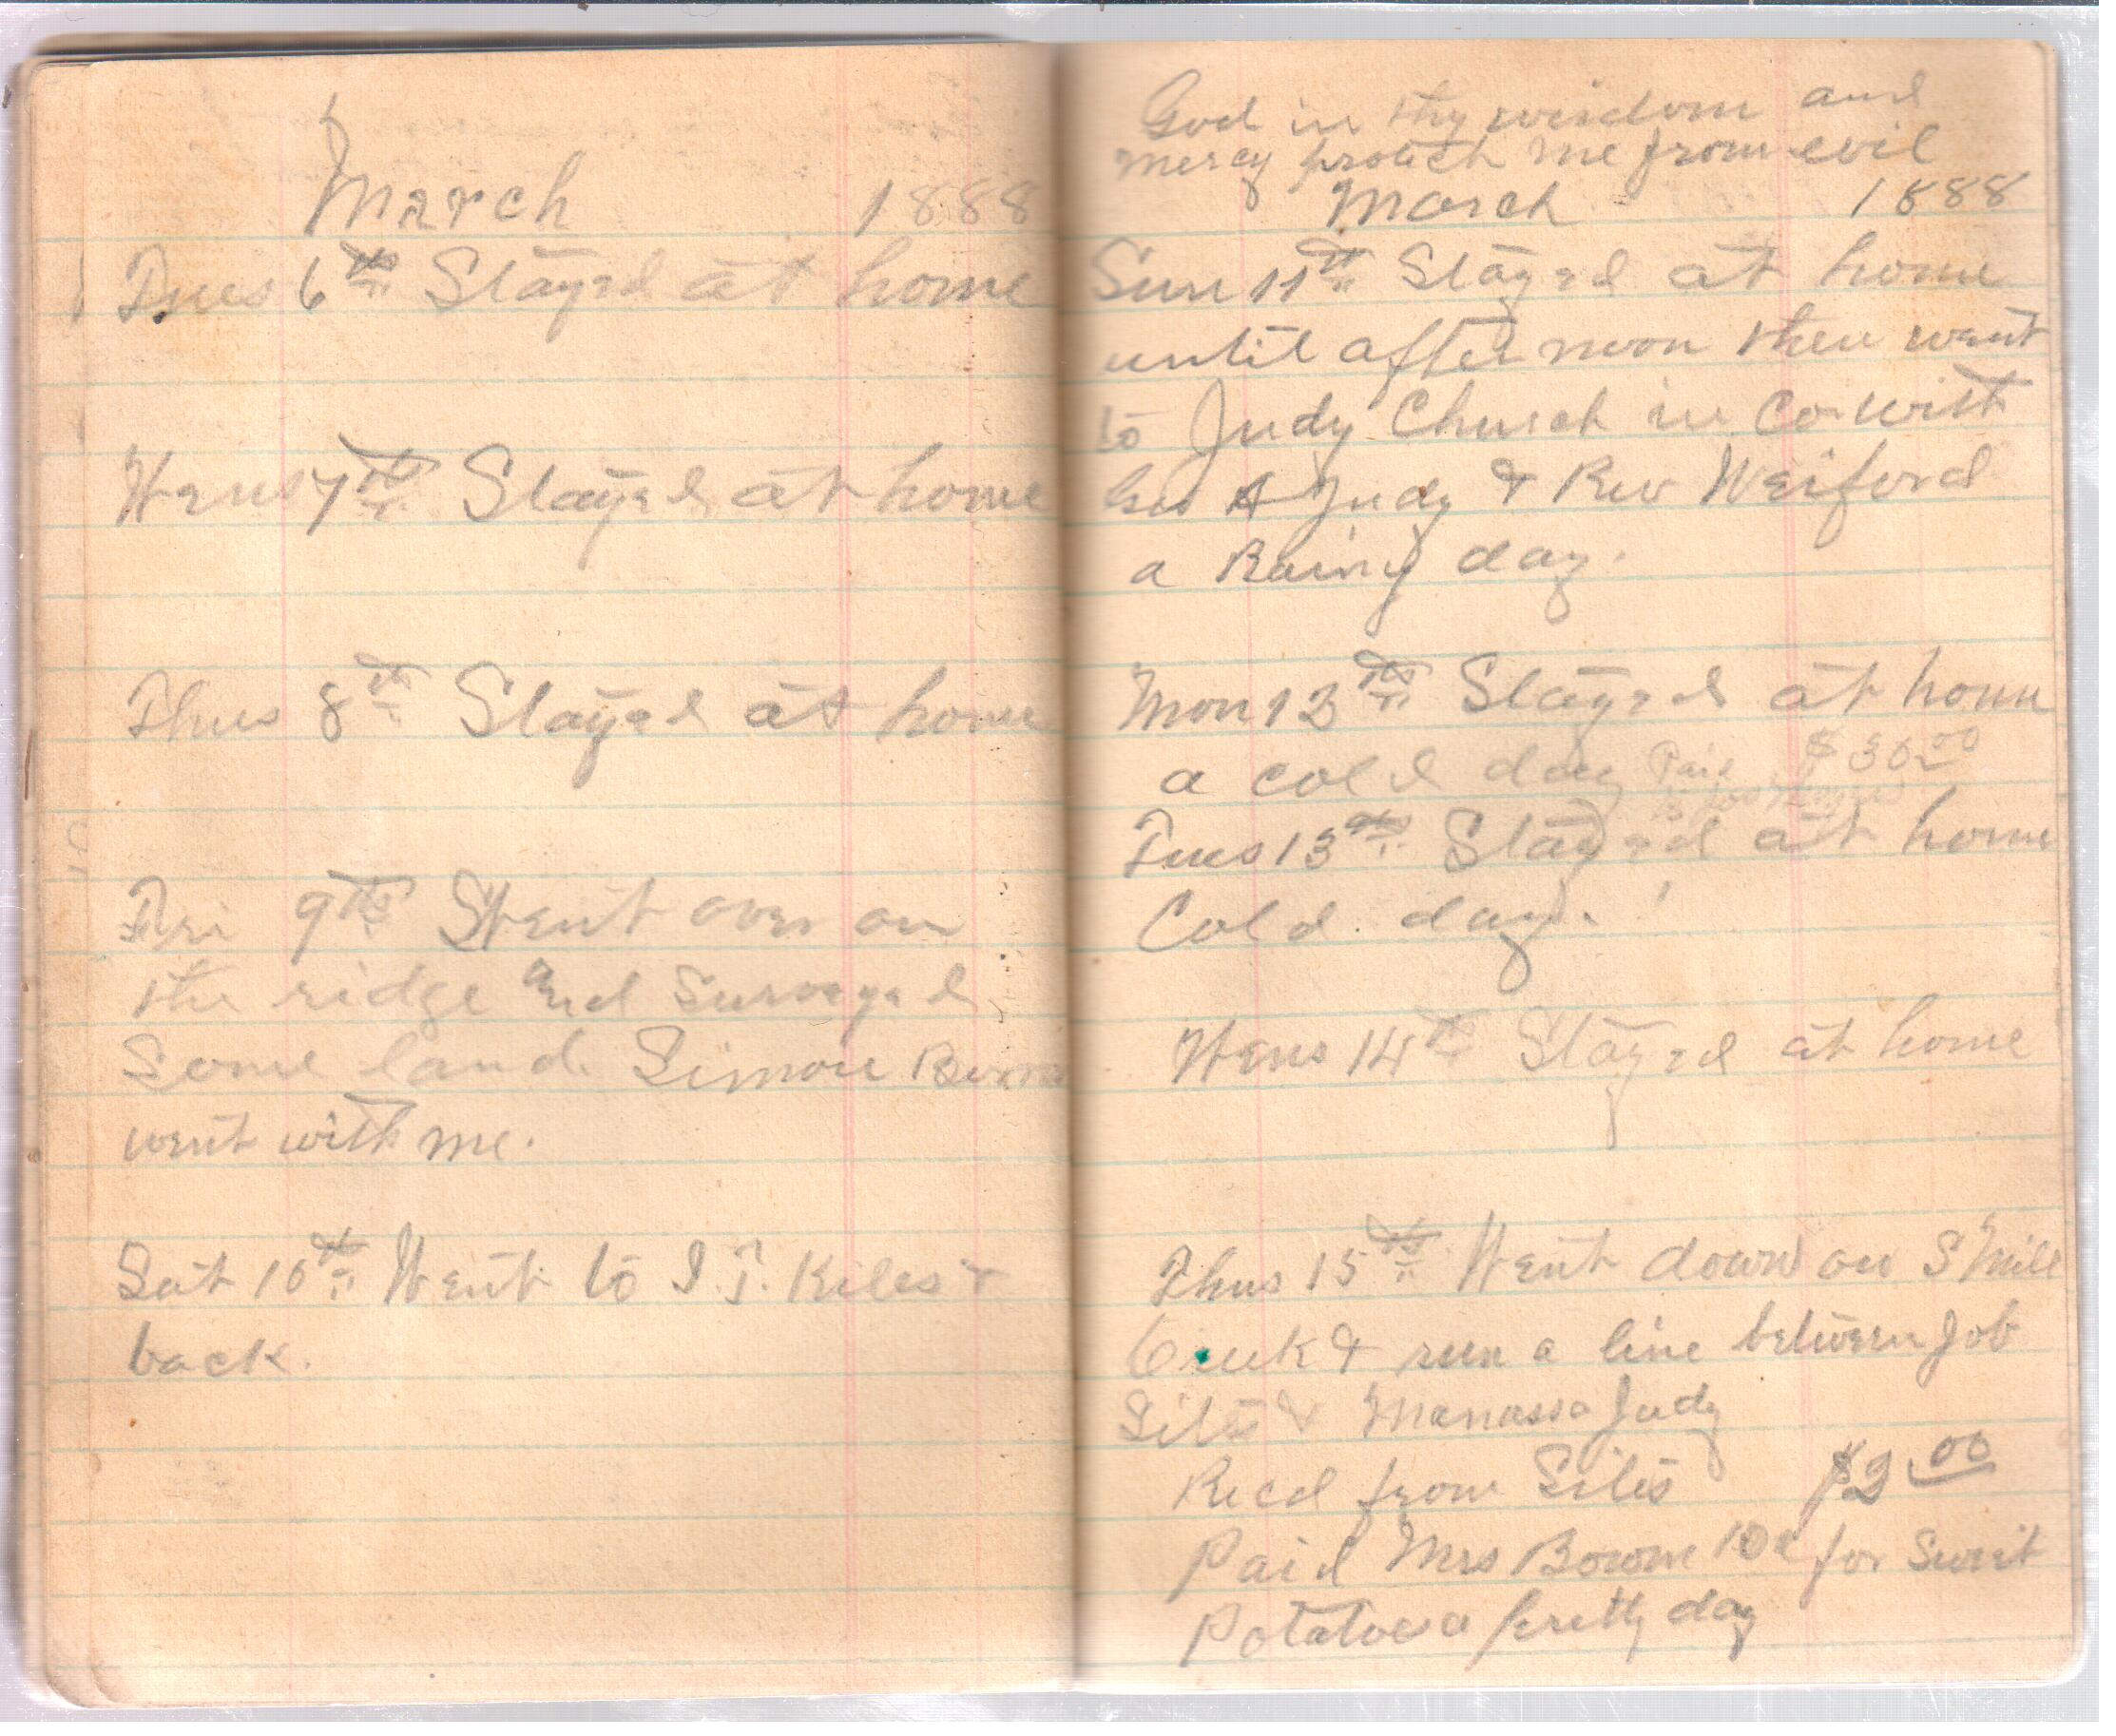 March 1888
Tues 6th Stayed at home
Wens 7th Stayed at home
Thus 8th Stayed at home
Fri 9th Went over on
the ridge and Surveyed
Some land. Simon
went with me.
Sat 10th Went to I. T. Kiles &
back.
God in thy wisdom and
mercy protect me from evil
March 1888
Sun 11th Stayed at home
until after noon then went
to Judy Church in Co with
A Judy & Rev Weiford
a Rainy day.
Mon 12th Stayed at home
a cold day Paid $30.00
Tues 13th Stayed at home
Cold. day.
Wens 14th Stayed at home
Thus 15th Went down on S Mill
Creek & run a line between Job
Sites & Manassa Judy
Recd from Sites $2.00
Paid Mrs Bowme 10c for Sweet
Potatoes a pretty day